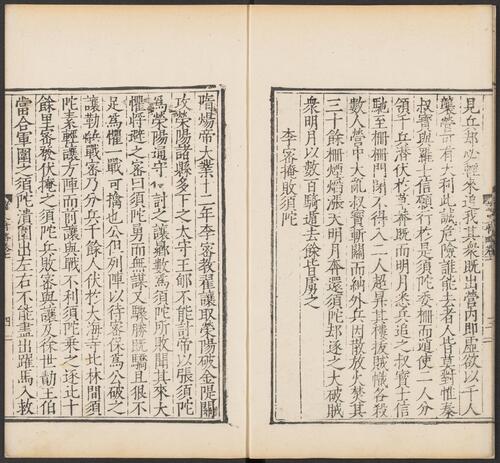 見兵却必輕來追我其衆旣出營内即虛欲以千人
襲營可有大利此誠危險誰能去者人皆莫對惟秦
叔寳與羅士信願行於是須陀委柵而遁使二人分
領千兵潜伏於草莽旣而明月悉兵追之叔寳士信
馳至柵柵門閉不得入二人超昇其樓拔賊幟各殺
數人營中大亂叔寳斬關而納外兵因散放火焚其
三十餘柵煙熖漲天明月奔還須陀却逐之大破賊
衆明月以數百騎遁去餘皆虜之
李密掩敗須陀
隋煬帝大業十二年李密教翟讓取滎陽破金隄關
攻滎陽諸縣多下之太守王郇不能討帝以張須陀
爲滎陽通守 討之讓鄉數爲須陀所敗聞其來大
懼將避之密曰須陀勇而無謀又驟勝旣驕且狠不
足爲懼一戰可擒也公但列陣以待密保爲公破之
讓勒 戰密乃分兵千餘人伏於大海寺北林間須
陀素輕讓方陣而前讓與戰不利須陀乗之逐北十
餘里密發伏掩之須陀兵敗密與讓及徐世勣王伯
當合軍圍之須陀潰圍出左右不能盡出躍馬入救
四